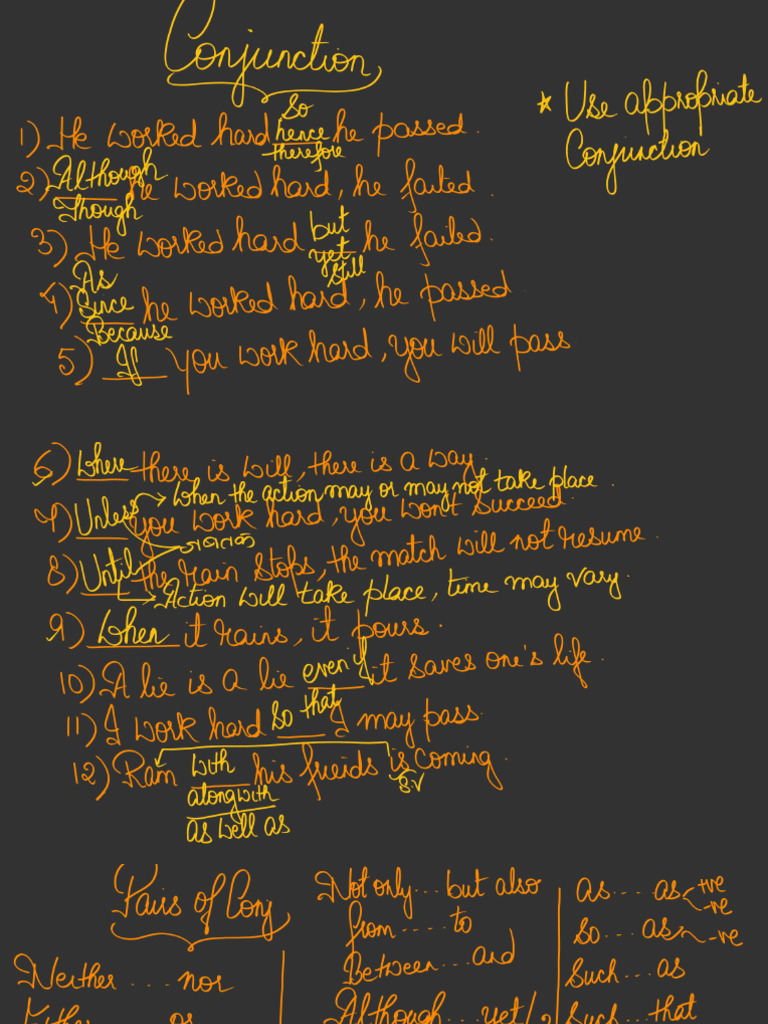 Conjunction
* Use appropriate
Conjunction
So
1) He worked hard hence he passed.
therefore
2) Although he worked hard, he failed.
Though
but
3) He worked hard yet he failed.
still
As
4) Since he worked hard, he passed
Because
5) If you work hard, you will pass
6) Where there is will, there is a way.
→ When the action may or may not take place.
7) Unless you work hard, you won't succeed.
8) Until the rain stops, the match will not resume.
→ Action will take place, time may vary.
9) When it rains, it pours.
10) A lie is a lie even if it saves one's life.
11) I work hard so that I may pass.
12) Ram with his frieids is coming.
S.V
alongwith
as well as
Pairs of Conj
Neither ... nor
Not only ... but also
from ..... to
Between ... and
Although ... yet/
as .... as +ve
-ve
So ... as -ve
Such ... as
Such ... that